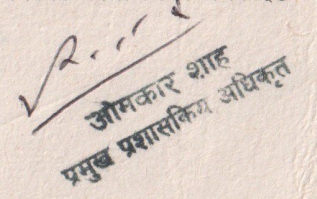 ओमकार शाह
प्रमुख प्रशासकिय अधिकृत